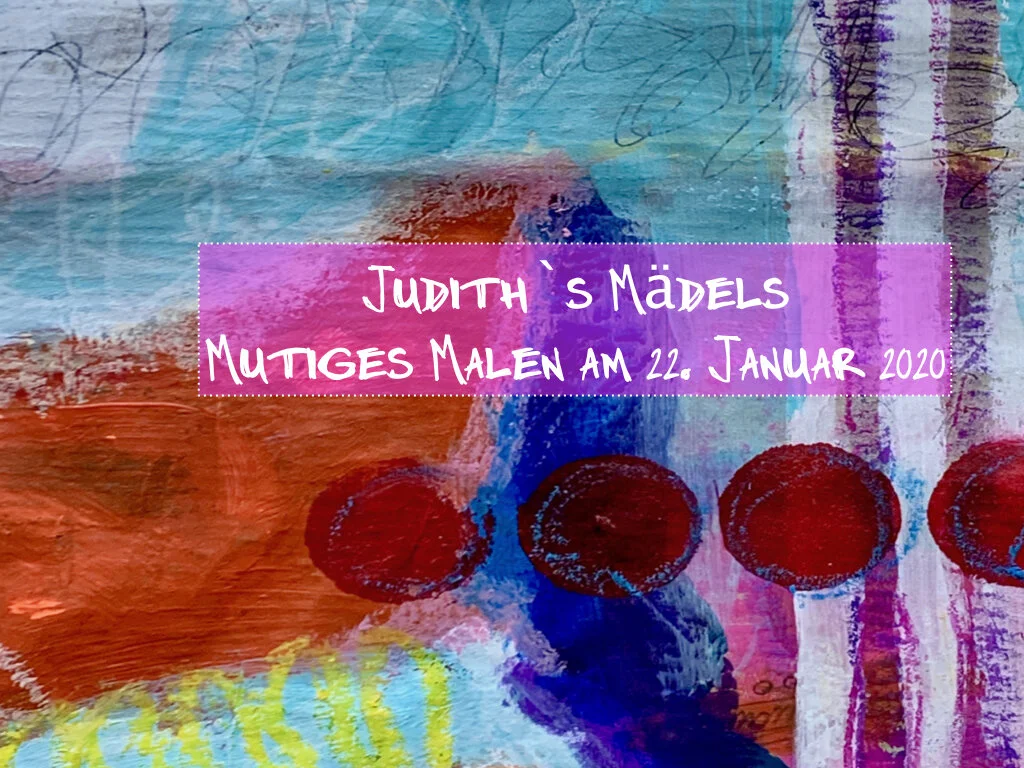 Judith`s Mädels
Mutiges Malen am 22. Januar 2020